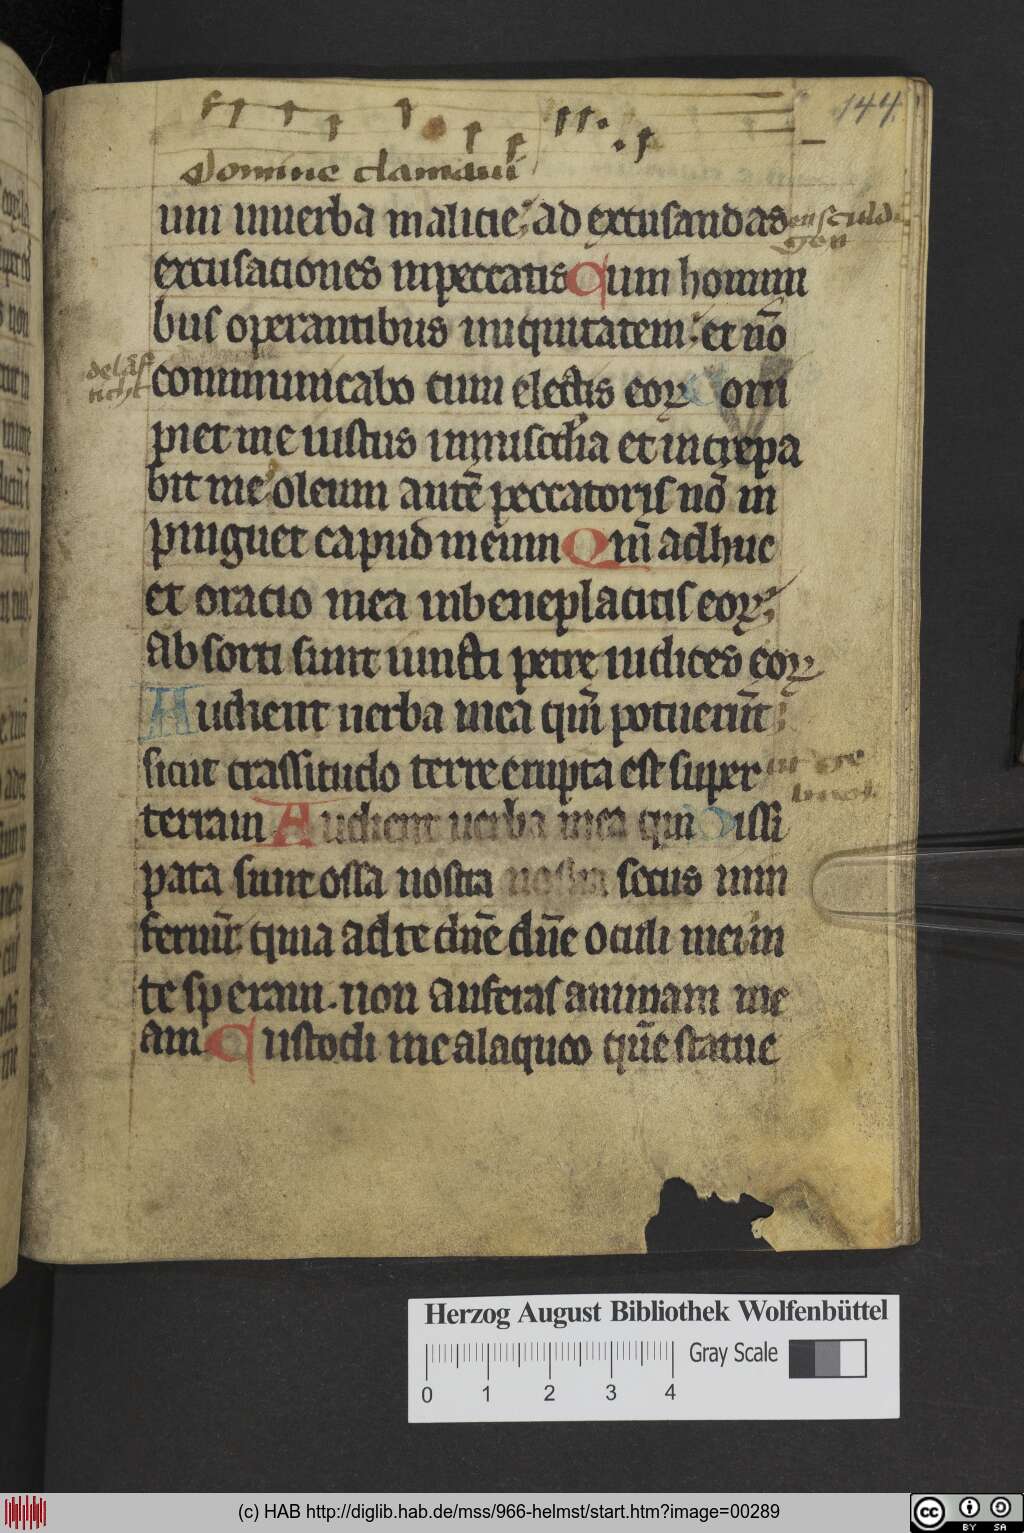 144
Domine clamaui
um inuerba malicie; ad excusandas
excusaciones inpeccatis Cum homini
bus operantibus iniquitatem; et nō
communicabo cum electis eoꝝ Corri
piet me iustus inmiscdͥia et increpa
bit me oleum autē peccatoris nō in
pinguet capud meum Qm̄ adhuc
et oratio mea inbeneplacitis eoꝝ;
Absorti sunt iuncti petre iudices eoꝝ
Audient uerba mea qm̄ potuerūt;
sicut crassitudo terre erupta est super
terram Audient uerba mea qm Dissi
pata sunt ossa nostra nostra secus inin
fernū: quia ad te dn̄e dn̄e oculi mei in
te speraui. non auferas animam me
am Custodi me alaqueo quē statue
Herzog August Bibliothek Wolfenbüttel
Gray Scale
0 1 2 3 4
(c) HAB http://diglib.hab.de/mss/966-helmst/start.htm?image=00289
CC BY SA